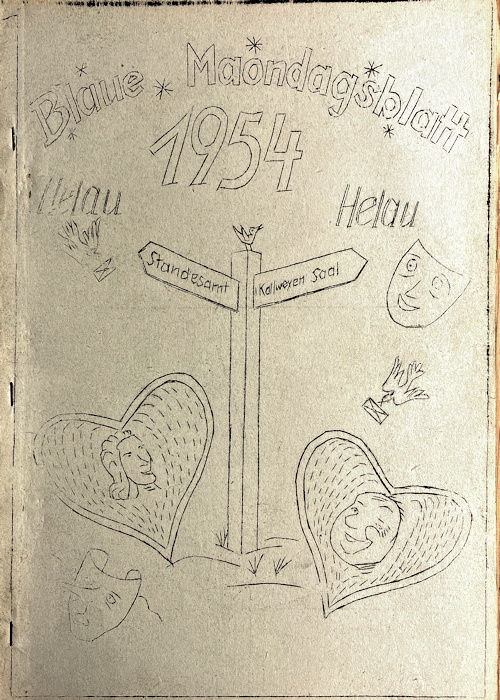 Blaue Maondagsblatt
1954
Helau Helau
Standesamt Kallweyen Saal